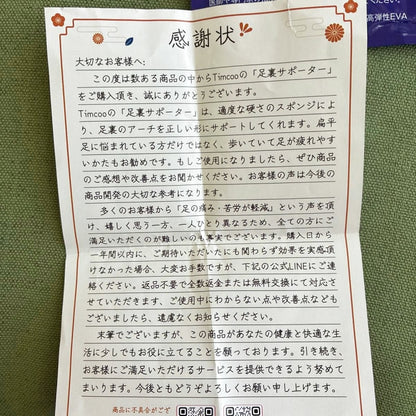 感謝状
大切なお客様へ:
この度は数ある商品の中からTimcooの「足裏サポーター」
をご購入頂き、誠にありがとうございます。
Timcooの「足裏サポーター」は、適度な硬さのスポンジによ
り、足裏のアーチを正しい形にサポートしてくれます。扁平
足に悩まれている方だけではなく、歩いていて足が疲れやす
いかたもお勧めです。もしご使用になりましたら、ぜひ商品
のご感想や改善点をお聞かせください。お客様の声は今後の
商品開発の大切な参考になります。
多くのお客様から「足の痛み・苦労が軽減」という声を頂
け、嬉しく思う一方、一人ひとり異なるため、全ての方にご
満足いただくのが難しいのも事実でございます。購入日から
一年間以内に、ご期待いただいたにも関わらず効果を実感頂
けなかった場合、大変お手数ですが、下記の公式LINEにご連
絡ください。返品不要で全数返金または無料交換にて対応さ
せていただきます、ご使用中にわからない点や改善点なども
ございましたら、遠慮なくお知らせください。
末筆でございますが、この商品があなたの健康と快適な生
活に少しでもお役に立てることを願っております。引き続き、
お客様にご満足いただけるサービスを提供できるよう努めて
まいります。今後ともどうぞよろしくお願い申し上げます。
商品に不具合がござ
高弾性EVA